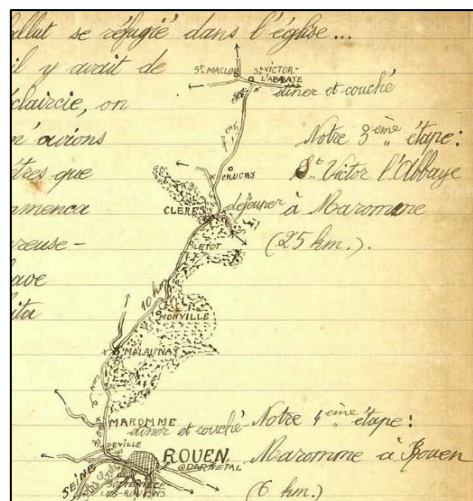 allut se réfugié dans l'église...
il y avait de
éclaircie, on
n'avions
ètres que
mmença
reuse-
ave
ita
St MACLOU
St VICTOR-
L'ABBAYE
diner et couché
Notre 3ème étape:
St Victor l'Abbaye
à Maromme
(25 km.).
CLÈRES
déjeuner
10 km
MONVILLE
MALAUNAY
MAROMME
diner et couché
DEVILLE
ROUEN
DARNETAL
SEINE
SOTTEVILLE
LES-ROUENS
Notre 4ème étape:
Maromme à Rouen
(6 km.)